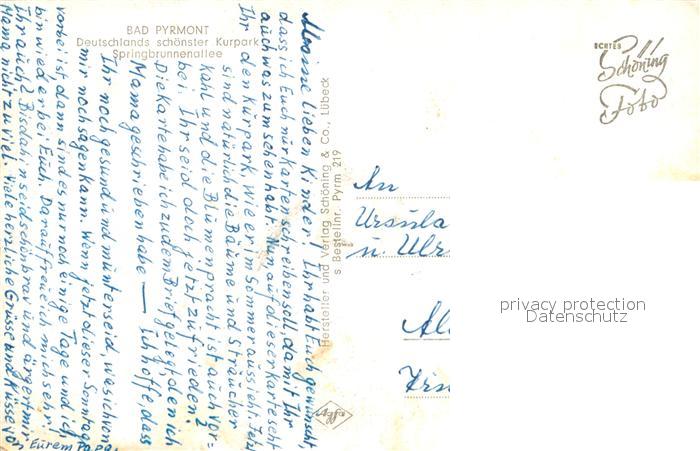 BAD PYRMONT
Deutschlands schönster Kurpark
Springbrunnenallee
Meine lieben Kinder! Ihr habt Euch gewünscht,
dass ich Euch nur Karten schreiben soll, damit Ihr
auch was zum sehen habt. Nun auf dieser Karte seht
Ihr den Kurpark, wie er im Sommer aussieht. Jetzt
sind natürlich die Bäume und Sträucher
kahl und die Blumenpracht ist auch vor=
bei. Ihr seid doch jetzt zufrieden?
Die Karte habe ich zu dem Brief gelegt, den ich
Mama geschrieben habe — Ich hoffe dass
Ihr noch gesund und munter seid, was ich von
mir noch sagen kann. Wenn jetzt dieser Sonntag
vorbei ist dann sind es nur noch einige Tage und ich
bin wieder bei Euch. Darauf freue ich mich sehr!
Ihr auch? Bis dahin seid schön brav und ärgert mir
Mama nicht zu viel. Viele herzliche Grüsse und Küsse von
Eurem Papa
Hersteller und Verlag Schöning & Co., Lübeck
s Bestellnr. Pyrm 219
ECHTES
Schöning
Foto
An
Ursula
u. Ulr
Al
Agfa
privacy protection
Datenschutz